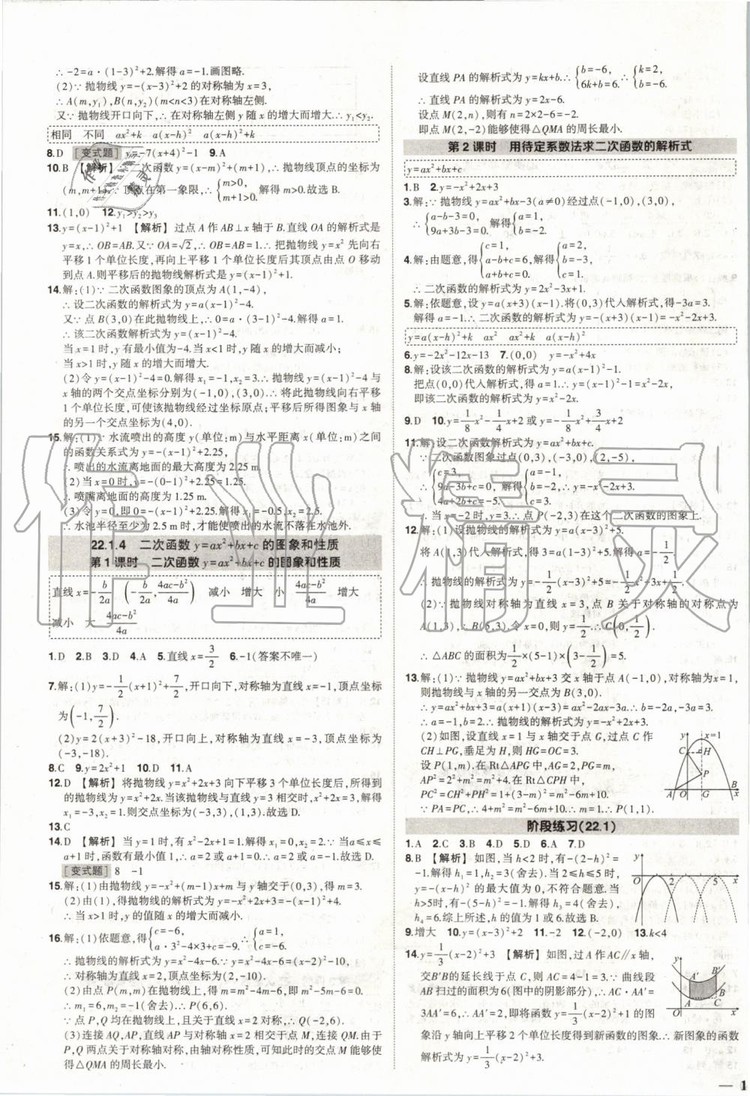 ∴-2=a·(1-3)²+2.解得a=-1.画图略.
(2)∵抛物线y=-(x-3)²+2的对称轴为x=3,
∴A(m,y₁),B(n,y₂)(m<n<3)在对称轴左侧.
又∵抛物线开口向下,∴在对称轴左侧y随x的增大而增大.∴y₁<y₂.
相同 不同 ax²+k a(x-h)² a(x-h)²+k
8.D [变式题] y=-7(x+4)²-1 9.A
10.B 【解析】∵二次函数y=(x-m)²+(m+1),∴抛物线顶点的坐标为
(m,m+1).∵顶点在第一象限,∴{m>0, m+1>0. 解得m>0,故选B.
11.(1,0) 12.y₁>y₂>y₃
13.y=(x-1)²+1 【解析】过点A作AB⊥x轴于B.∵直线OA的解析式是
y=x,∴OB=AB.又∵OA=√2,∴OB=AB=1.把抛物线y=x²先向右
平移1个单位长度,再向上平移1个单位长度后其顶点由点O移动
到点A.则平移后的抛物线解析式是y=(x-1)²+1.
14.解:(1)∵二次函数图象的顶点为A(1,-4),
∴设二次函数的解析式为y=a(x-1)²-4.
又∵点B(3,0)在此抛物线上,∴0=a·(3-1)²-4.解得a=1.
∴该二次函数的解析式为y=(x-1)²-4.
当x=1时,y有最小值为-4.当x<1时,y随x的增大而减小;
当x>1时,y随x的增大而增大.
(2)令y=(x-1)²-4=0.解得x₁=-1,x₂=3.∴抛物线y=(x-1)²-4与
x轴的两个交点坐标分别为(-1,0),(3,0).∴将此抛物线向右平移
1个单位长度,可使该抛物线经过坐标原点;平移后所得图象与x轴
的另一个交点坐标为(4,0).
15.解:(1)∵水流喷出的高度y(单位:m)与水平距离x(单位:m)之间
的函数关系式为y=-(x-1)²+2.25,
∴喷出的水流离地面的最大高度为2.25 m.
(2)当x=0时,y=-(0-1)²+2.25=1.25.
∴喷嘴离地面的高度为1.25 m.
(3)令y=0,即0=-(x-1)²+2.25.解得x₁=-0.5,x₂=2.5.
∴水池半径至少为2.5 m时,才能使喷出的水流不落在水池外.
22.1.4 二次函数y=ax²+bx+c的图象和性质
第1课时 二次函数y=ax²+bx+c的图象和性质
直线x=-b/2a (-b/2a, (4ac-b²)/4a) 减小 增大 小 (4ac-b²)/4a 增大
减小 大 (4ac-b²)/4a
1.D 2.B 3.D 4.A 5.直线x=3/2 6.-1(答案不唯一)
7.解:(1)y=-1/2(x+1)²+7/2,开口向下,对称轴为直线x=-1,顶点坐标
为(-1,7/2).
(2)y=2(x+3)²-18,开口向上,对称轴为直线x=-3,顶点坐标为
(-3,-18).
8.C 9.y=2x²+1 10.D 11.A
12.D 【解析】将抛物线y=x²+2x+3向下平移3个单位长度后,所得到
的抛物线为y=x²+2x.当该抛物线与直线y=3相交时,x²+2x=3.解得
x₁=-3,x₂=1.则交点坐标为(-3,3),(1,3).故选D.
13.C
14.D 【解析】当y=1时,有x²-2x+1=1.解得x₁=0,x₂=2.∵当a≤x≤
a+1时,函数有最小值1,∴a=2或a+1=0.∴a=2或a=-1.故选D.
[变式题] 8 -1
15.解:(1)由抛物线y=-x²+(m-1)x+m与y轴交于(0,3),得m=3.
(2)由(1),得抛物线的解析式为y=-x²+2x+3=-(x-1)²+4.
∴当x>1时,y的值随x的增大而减小.
16.解:(1)依题意,得{c=-6, a·3²-4×3+c=-9. ∴{a=1, c=-6.
∴抛物线的解析式为y=x²-4x-6.∵y=x²-4x-6=(x-2)²-10,
∴对称轴为直线x=2,顶点坐标为(2,-10).
(2)由点P(m,m)在抛物线上,得m=m²-4m-6,即m²-5m-6=0.
∴m₁=6,m₂=-1(舍去).∴P(6,6).
∵点P,Q均在抛物线上,且关于直线x=2对称,∴Q(-2,6).
(3)连接AQ,AP,直线AP与对称轴x=2相交于点M.由于
P,Q两点关于对称轴对称,由轴对称性质,可知此时的交点M能够使
得△QMA的周长最小.
设直线PA的解析式为y=kx+b.∴{b=-6, 6k+b=6. ∴{k=2, b=-6.
∴直线PA的解析式为y=2x-6.
设点M(2,n),则有n=2×2-6=-2.
即点M(2,-2)能够使得△QMA的周长最小.
第2课时 用待定系数法求二次函数的解析式
y=ax²+bx+c
1.B 2.y=-x²+2x+3
3.解:∵抛物线y=ax²+bx-3(a≠0)经过点(-1,0),(3,0),
∴{a-b-3=0, 9a+3b-3=0. 解得{a=1, b=-2.
4.解:由题意,得{c=1, a-b+c=6, a+b+c=0. 解得{a=2, b=-3, c=1.
∴二次函数的解析式为y=2x²-3x+1.
5.解:依题意,设y=a(x+3)(x-1).将(0,3)代入解析式,得-3a=3.
解得a=-1.∴二次函数的解析式为y=-(x+3)(x-1)=-x²-2x+3.
y=a(x-h)²+k ax² ax²+k a(x-h)²
6.y=-2x²-12x-13 7.(0,0) y=-x²+4x
8.解:设该二次函数的解析式为y=a(x-1)²-1.
把点(0,0)代入解析式,得a=1.∴y=(x-1)²-1=x²-2x,
即该二次函数的解析式为y=x²-2x.
9.D 10.y=1/8x²-1/4x+2或y=-1/8x²+3/4x+2
11.解:设二次函数的解析式为y=ax²+bx+c.
∵二次函数图象过点(0,3),(-3,0),(2,-5),
∴{c=3, 9a-3b+c=0, 4a+2b+c=-5. 解得{a=-1, b=-2, c=3. ∴y=-x²-2x+3.
∵当x=-2时,y=3,∴点P(-2,3)在这个二次函数的图象上.
12.解:(1)设抛物线的解析式为y=a(x-3)²+5.
将A(1,3)代入解析式,得3=a(1-3)²+5.解得a=-1/2.
∴抛物线的解析式为y=-1/2(x-3)²+5=-1/2x²+3x+1/2.
(2)∵抛物线的对称轴为直线x=3,点B关于对称轴的对称点为
A(1,3),∴B(5,3).令x=0,则y=1/2.∴C(0,1/2).
∴△ABC的面积为1/2×(5-1)×(3-1/2)=5.
13.解:(1)∵抛物线y=ax²+bx+3交x轴于点A(-1,0),对称轴为x=1,
则抛物线与x轴的另一个交点为B(3,0).
∴y=ax²+bx+3=a(x+1)(x-3)=ax²-2ax-3a.∴b=-2a,-3a=3.
∴a=-1,b=2.∴抛物线的解析式为y=-x²+2x+3.
(2)如图,设直线x=1与x轴交于点G,过点C作
CH⊥PG,垂足为H,则HG=OC=3.
设P(1,m).在Rt△APG中,AG=2,PG=m,
AP²=2²+m²=m²+4.在Rt△CPH中,
PC²=CH²+PH²=1+(3-m)²=m²-6m+10.
∵PA=PC,∴4+m²=m²-6m+10.∴m=1.∴P(1,1).
y x=1 C H P A O G x
阶段练习(22.1)
1.A 2.C 3.B 4.C 5.A 6.D 7.D
8.B 【解析】如图,当h<2时,有-(2-h)²=
-1.解得h₁=1,h₂=3(舍去).当2≤h≤5时,
y=-(x-h)²的最大值为0,不符合题意.当
h>5时,有-(5-h)²=-1.解得h₃=4(舍去),
h₄=6.综上所述,h的值为1或6.故选B.
y O 2 5 x
9.增大 10.y=1/3(x-2)²+2 11.-2 12.(-2,0) 13.k<4
14.y=1/3(x-2)²+3 【解析】如图,过A作AC∥x轴,
交B′B的延长线于点C,则AC=4-1=3.∵曲线段
AB扫过的面积为6(图中的阴影部分),∴AC·AA′=
3AA′=6,∴AA′=2,即将函数y=1/3(x-2)²+1的图
象沿y轴向上平移2个单位长度得到新函数的图象.∴新图象的函数
解析式为y=1/3(x-2)²+3.
y A′ B′ B A C O x
— 1
作业精灵